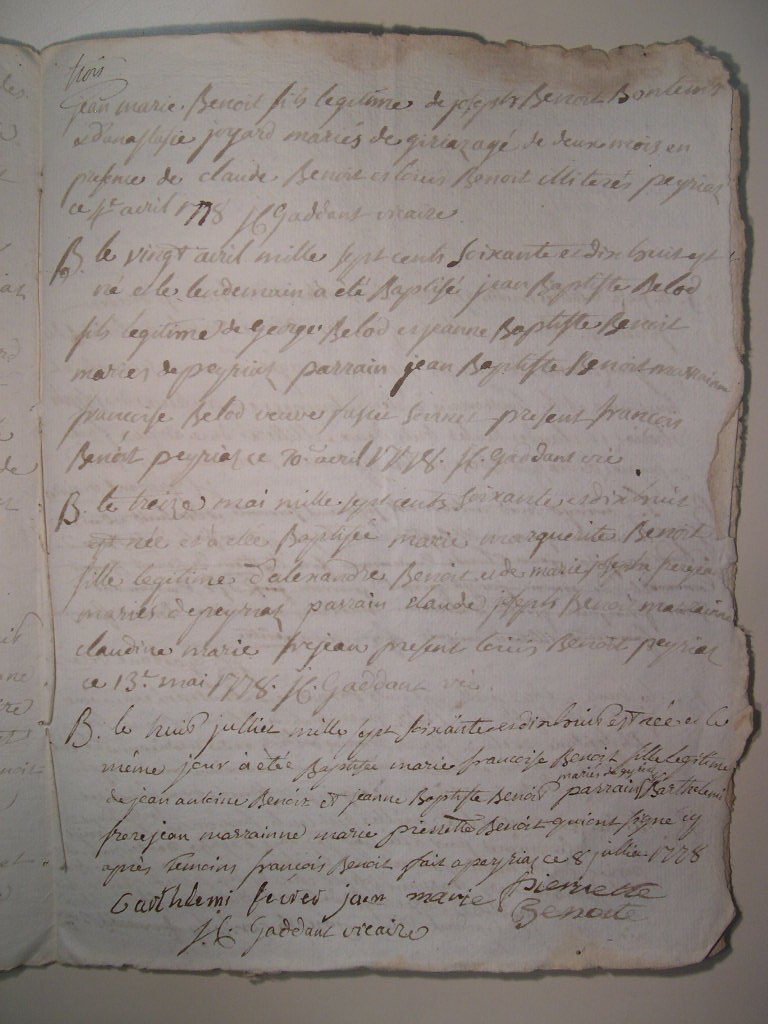 trois
jean marie Benoit fils legitime de joseph Benoit Bontems
et d'anastasie joyard mariés de giriaz agé de deux mois en
présence de claude Benoit et loüis Benoit illiterés peyriaz
ce 4e avril 1778 J C Gaddant vicaire
B. le vingt avril mille sept cents soixante et dix huit est
né et le lendemain a été Baptisé jean Baptiste Belod
fils legitime de George Belod et jeanne Baptiste Benoit
mariés de peyriaz parrain jean Baptiste Benoit marraine
francoise Belod veuve present françois
Benoit peyriaz ce avril 1778. J C. Gaddant vic
B. le treize mai mille sept cents soixante et dix huit
est née et a été Baptisée marie marguerite Benoit
fille legitime d'alexandre Benoit et de marie joseph
mariés de peyriaz parrain claude joseph Benoit marraine
claudine marie frejean present loüis Benoit peyriaz
ce 13e mai 1778. J C. Gaddant vic.
B. le huit julliet mille sept soixante et dix huit est née et le
même jour à étée Baptisée marie francoise Benoit fille legitime
de jean antoine Benoit et jeanne Baptiste Benoit mariés de peyriaz parrain Barthelemi
frerejean marrainne marie pierrette Benoit qui ont signé cy
après temoins françois Benoit fait a peyriaz ce 8 julliet 1778
Barthlemi jean marie pierrette
Benoite
J C. Gaddant vicaire